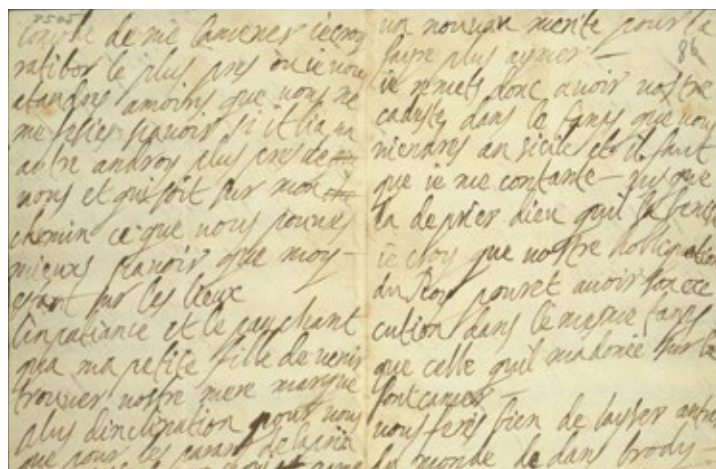 8505
de me l'amener ie croy
ratibor le plus pres ou ie vous
atandres amoins que vous ne
me fesies scavoir si il lia
autre androy plus pres de
vous et qui soit sur mon
chemin ce que vous pouves
mieux scavoir que moy
estant sur les lieux
l'inpatiance et le panchant
qua ma petite fille de venir
trouver vostre mere marque
plus dinclination pour vous
que pour les
un nouvau merite pour la
faire plus aymer
84
ie remets donc avoir vostre
dans le tamps que vous
viendres an sicile et il faut
que ie me contante jusque
la deprier dieu quil
ie croy que vostre hobligation
du Roy pouret avoir son exe
cution dans le mesme tamps
que celle quil madonée sur le
vous feres bien de layser antre
le monde de dans brody